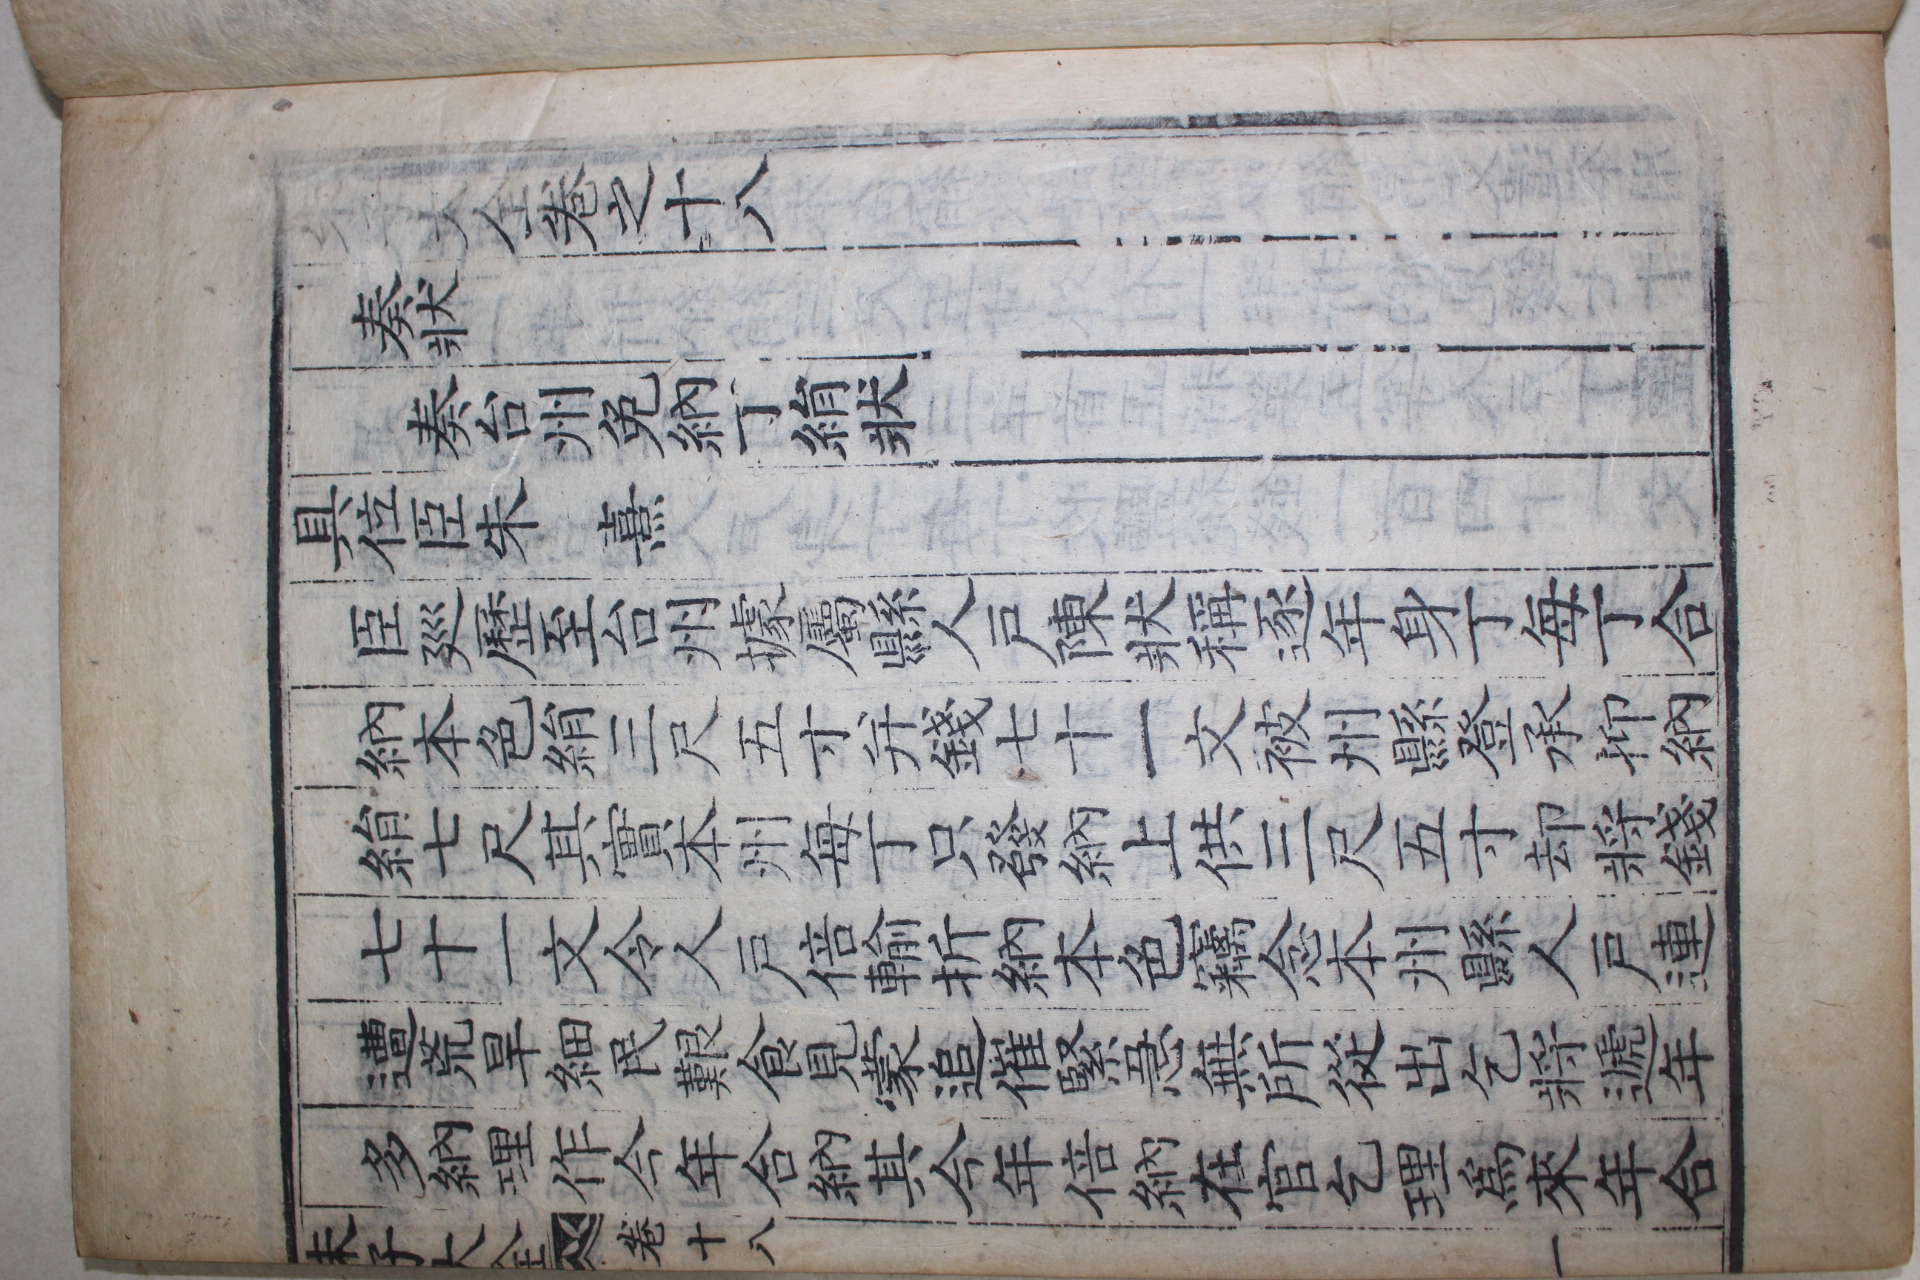 朱子大全卷之十八
奏狀
奏台州免納丁絹狀
具位臣朱 熹
臣廵歷至台州據屬縣人戶陳狀稱逐年身丁每丁合
納本色絹三尺五寸幷錢七十一文被州縣登承抑納
絹七尺其實本州每丁只發納上供三尺五寸却將錢
七十一文令人戶倍輸折納本色竊念本州縣人戶連
遭荒旱細民艱食見蒙追催緊急無所從出乞將遞年
多納理作今年合納其今年倍納在官乞理爲來年合
朱子大全 卷十八 一